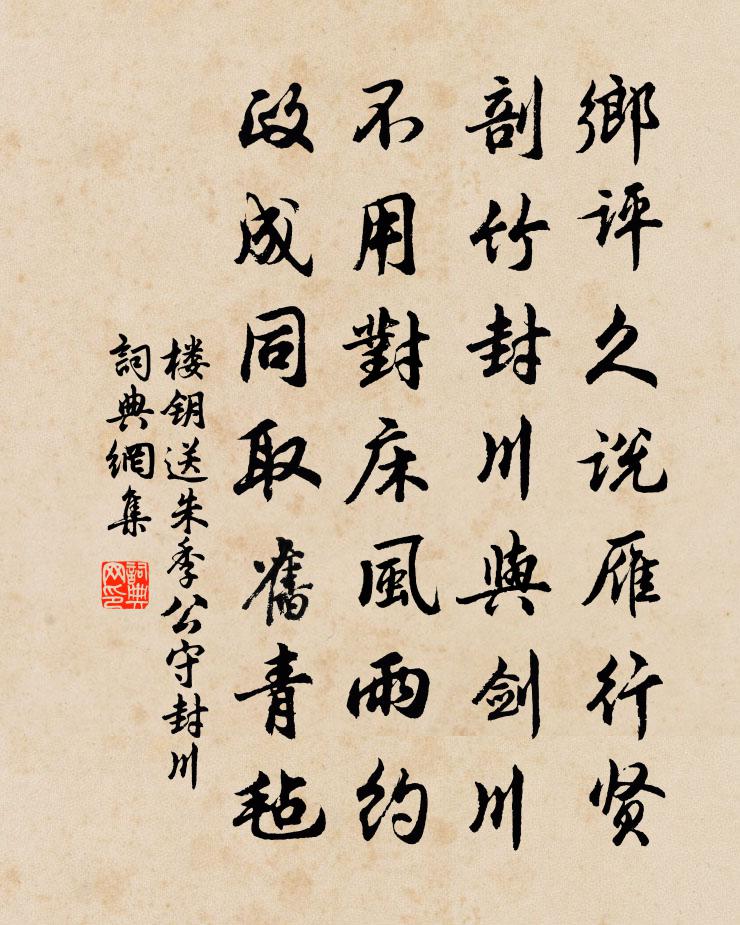 鄉評久说雁行贤
剖竹封川與剑川
不用對床風雨約
政成同取舊青毡
楼钥送朱季公守封川
詞典網集
詞典网印